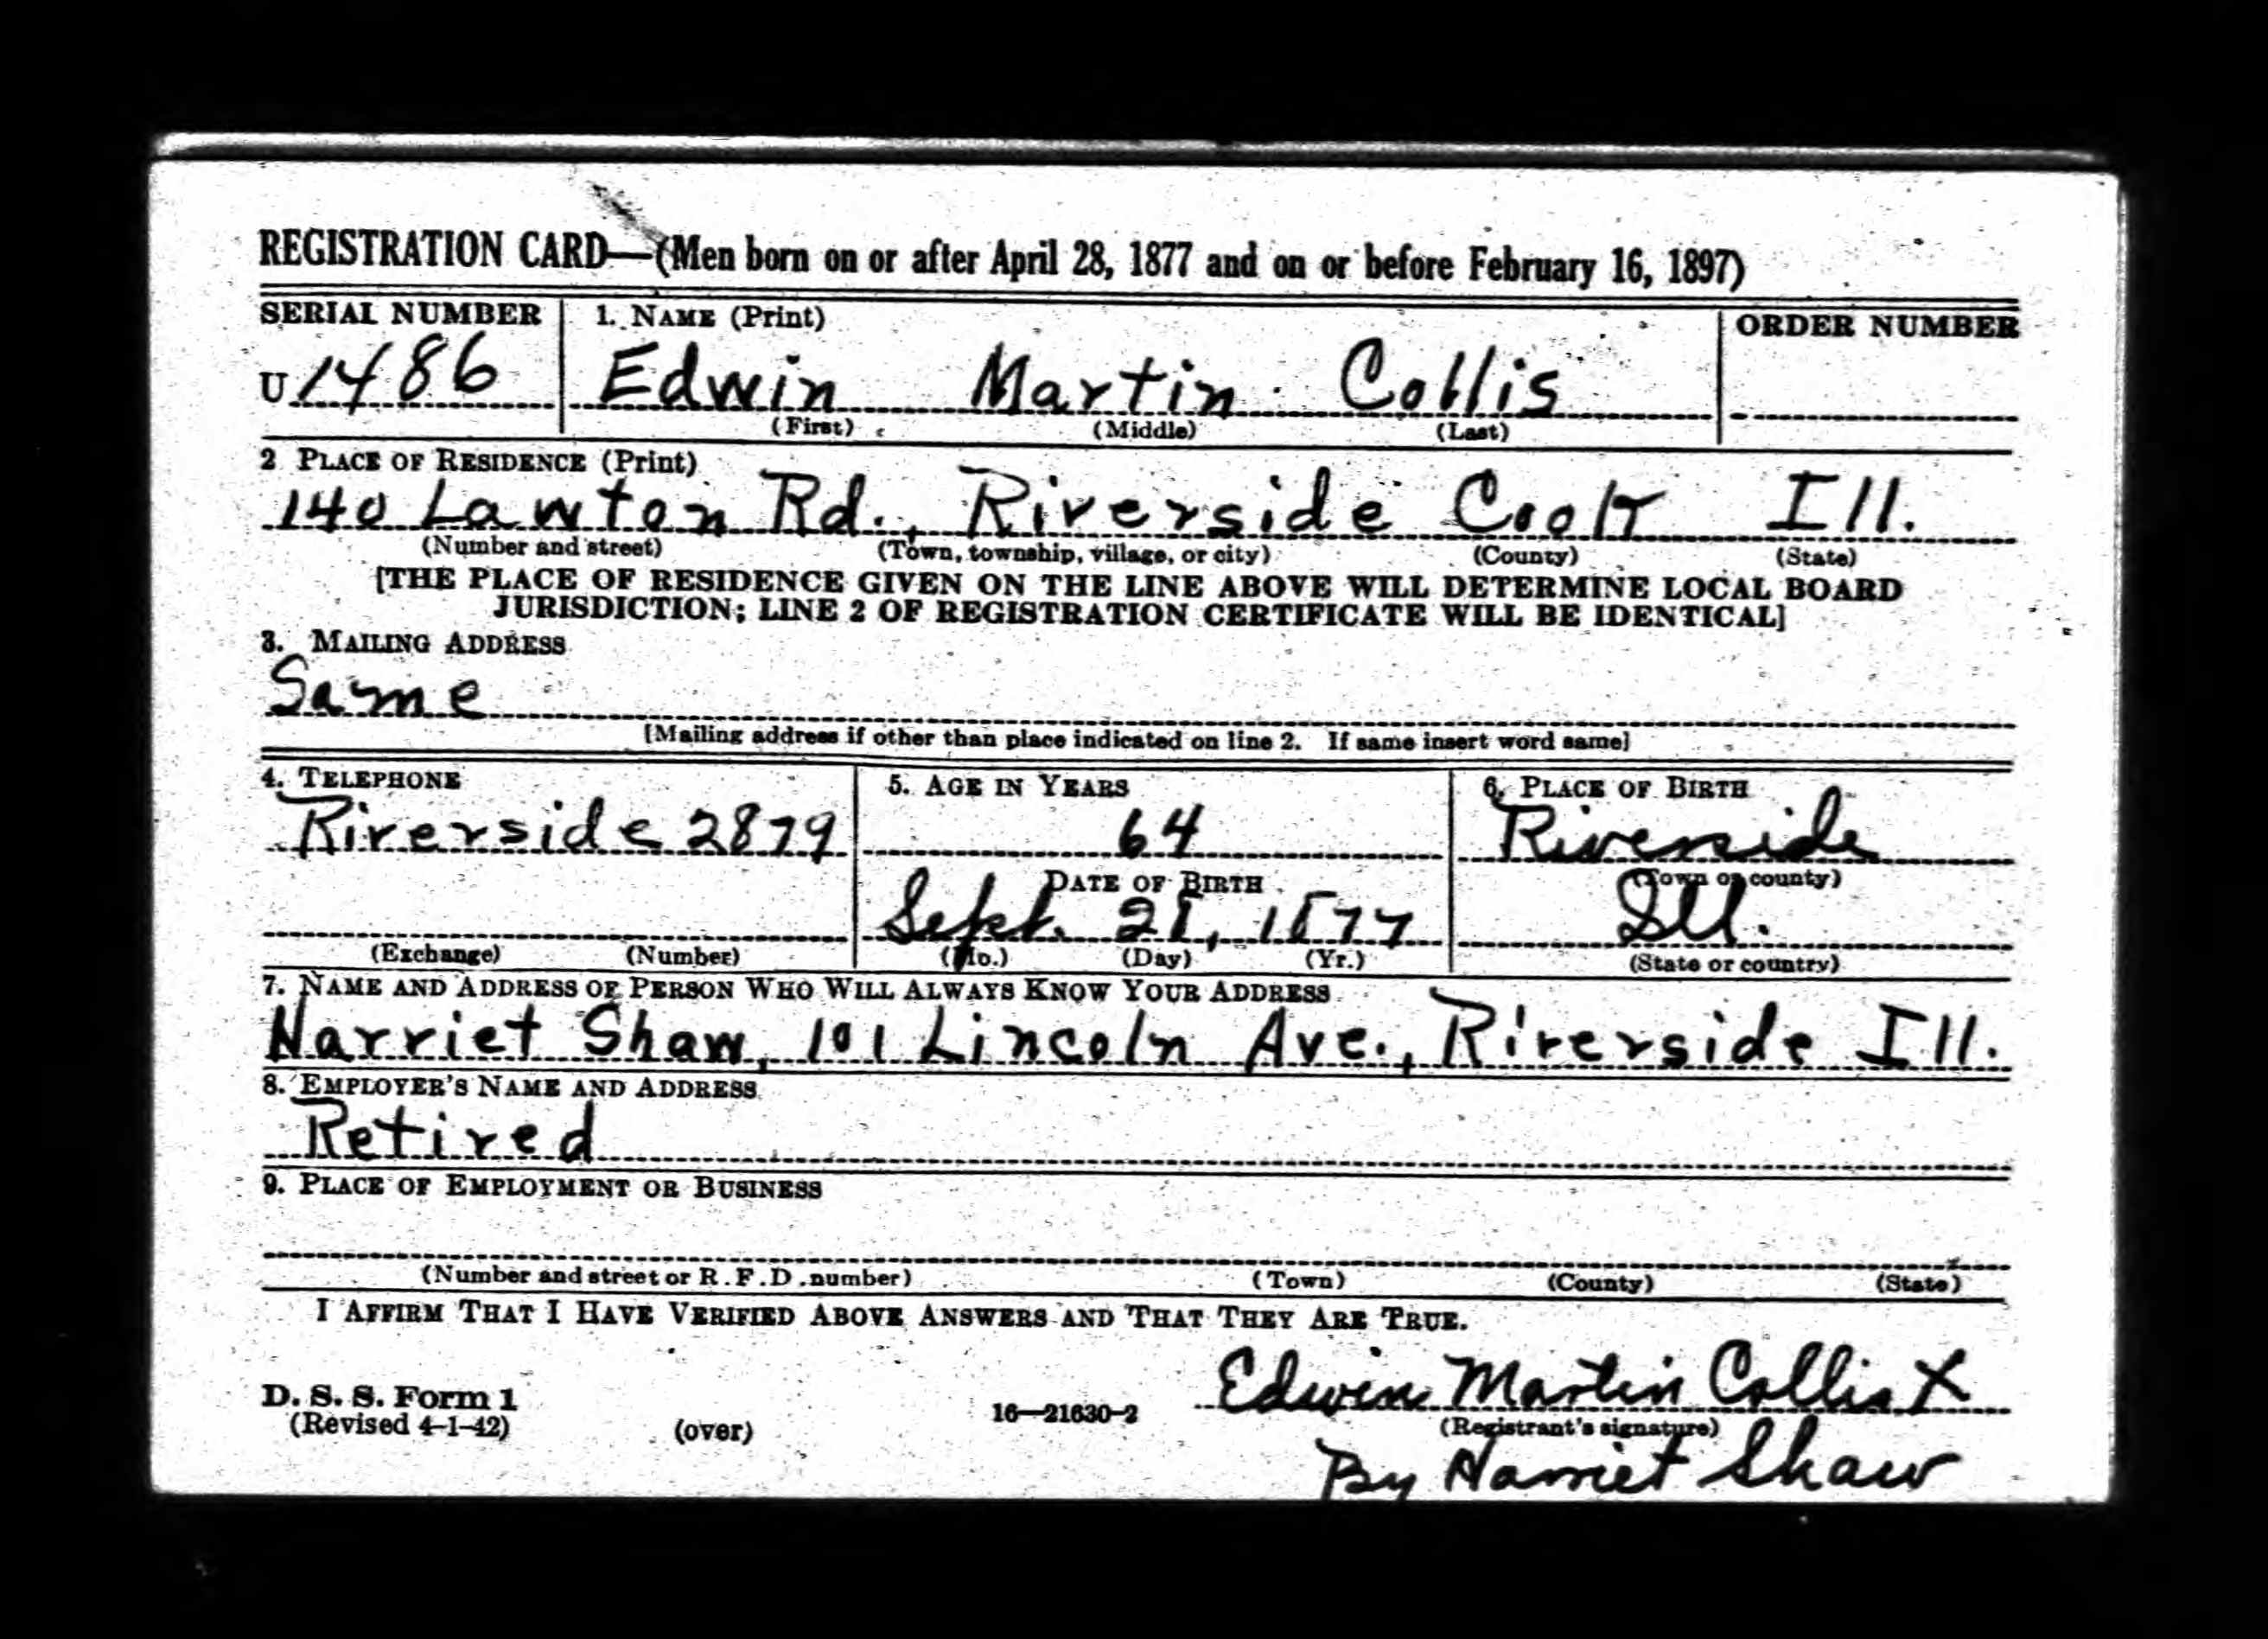 REGISTRATION CARD—(Men born on or after April 28, 1877 and on or before February 16, 1897)
SERIAL NUMBER 1. NAME (Print) ORDER NUMBER
U 1486 Edwin Martin Collis
(First) (Middle) (Last)
2 PLACE OF RESIDENCE (Print)
140 Lawton Rd., Riverside Cook Ill.
(Number and street) (Town, township, village, or city) (County) (State)
[THE PLACE OF RESIDENCE GIVEN ON THE LINE ABOVE WILL DETERMINE LOCAL BOARD
JURISDICTION; LINE 2 OF REGISTRATION CERTIFICATE WILL BE IDENTICAL]
3. MAILING ADDRESS
Same
[Mailing address if other than place indicated on line 2. If same insert word same]
4. TELEPHONE 5. AGE IN YEARS 6. PLACE OF BIRTH
Riverside 2879 64 Riverside
DATE OF BIRTH (Town or county)
Sept. 28, 1877 Ill.
(Exchange) (Number) (Mo.) (Day) (Yr.) (State or country)
7. NAME AND ADDRESS OF PERSON WHO WILL ALWAYS KNOW YOUR ADDRESS
Harriet Shaw, 101 Lincoln Ave., Riverside Ill.
8. EMPLOYER'S NAME AND ADDRESS
Retired
9. PLACE OF EMPLOYMENT OR BUSINESS
(Number and street or R.F.D. number) (Town) (County) (State)
I AFFIRM THAT I HAVE VERIFIED ABOVE ANSWERS AND THAT THEY ARE TRUE.
Edwin Martin Collis X
D. S. S. Form 1
(Revised 4-1-42) (over) 16—21630-2 (Registrant's signature)
By Harriet Shaw